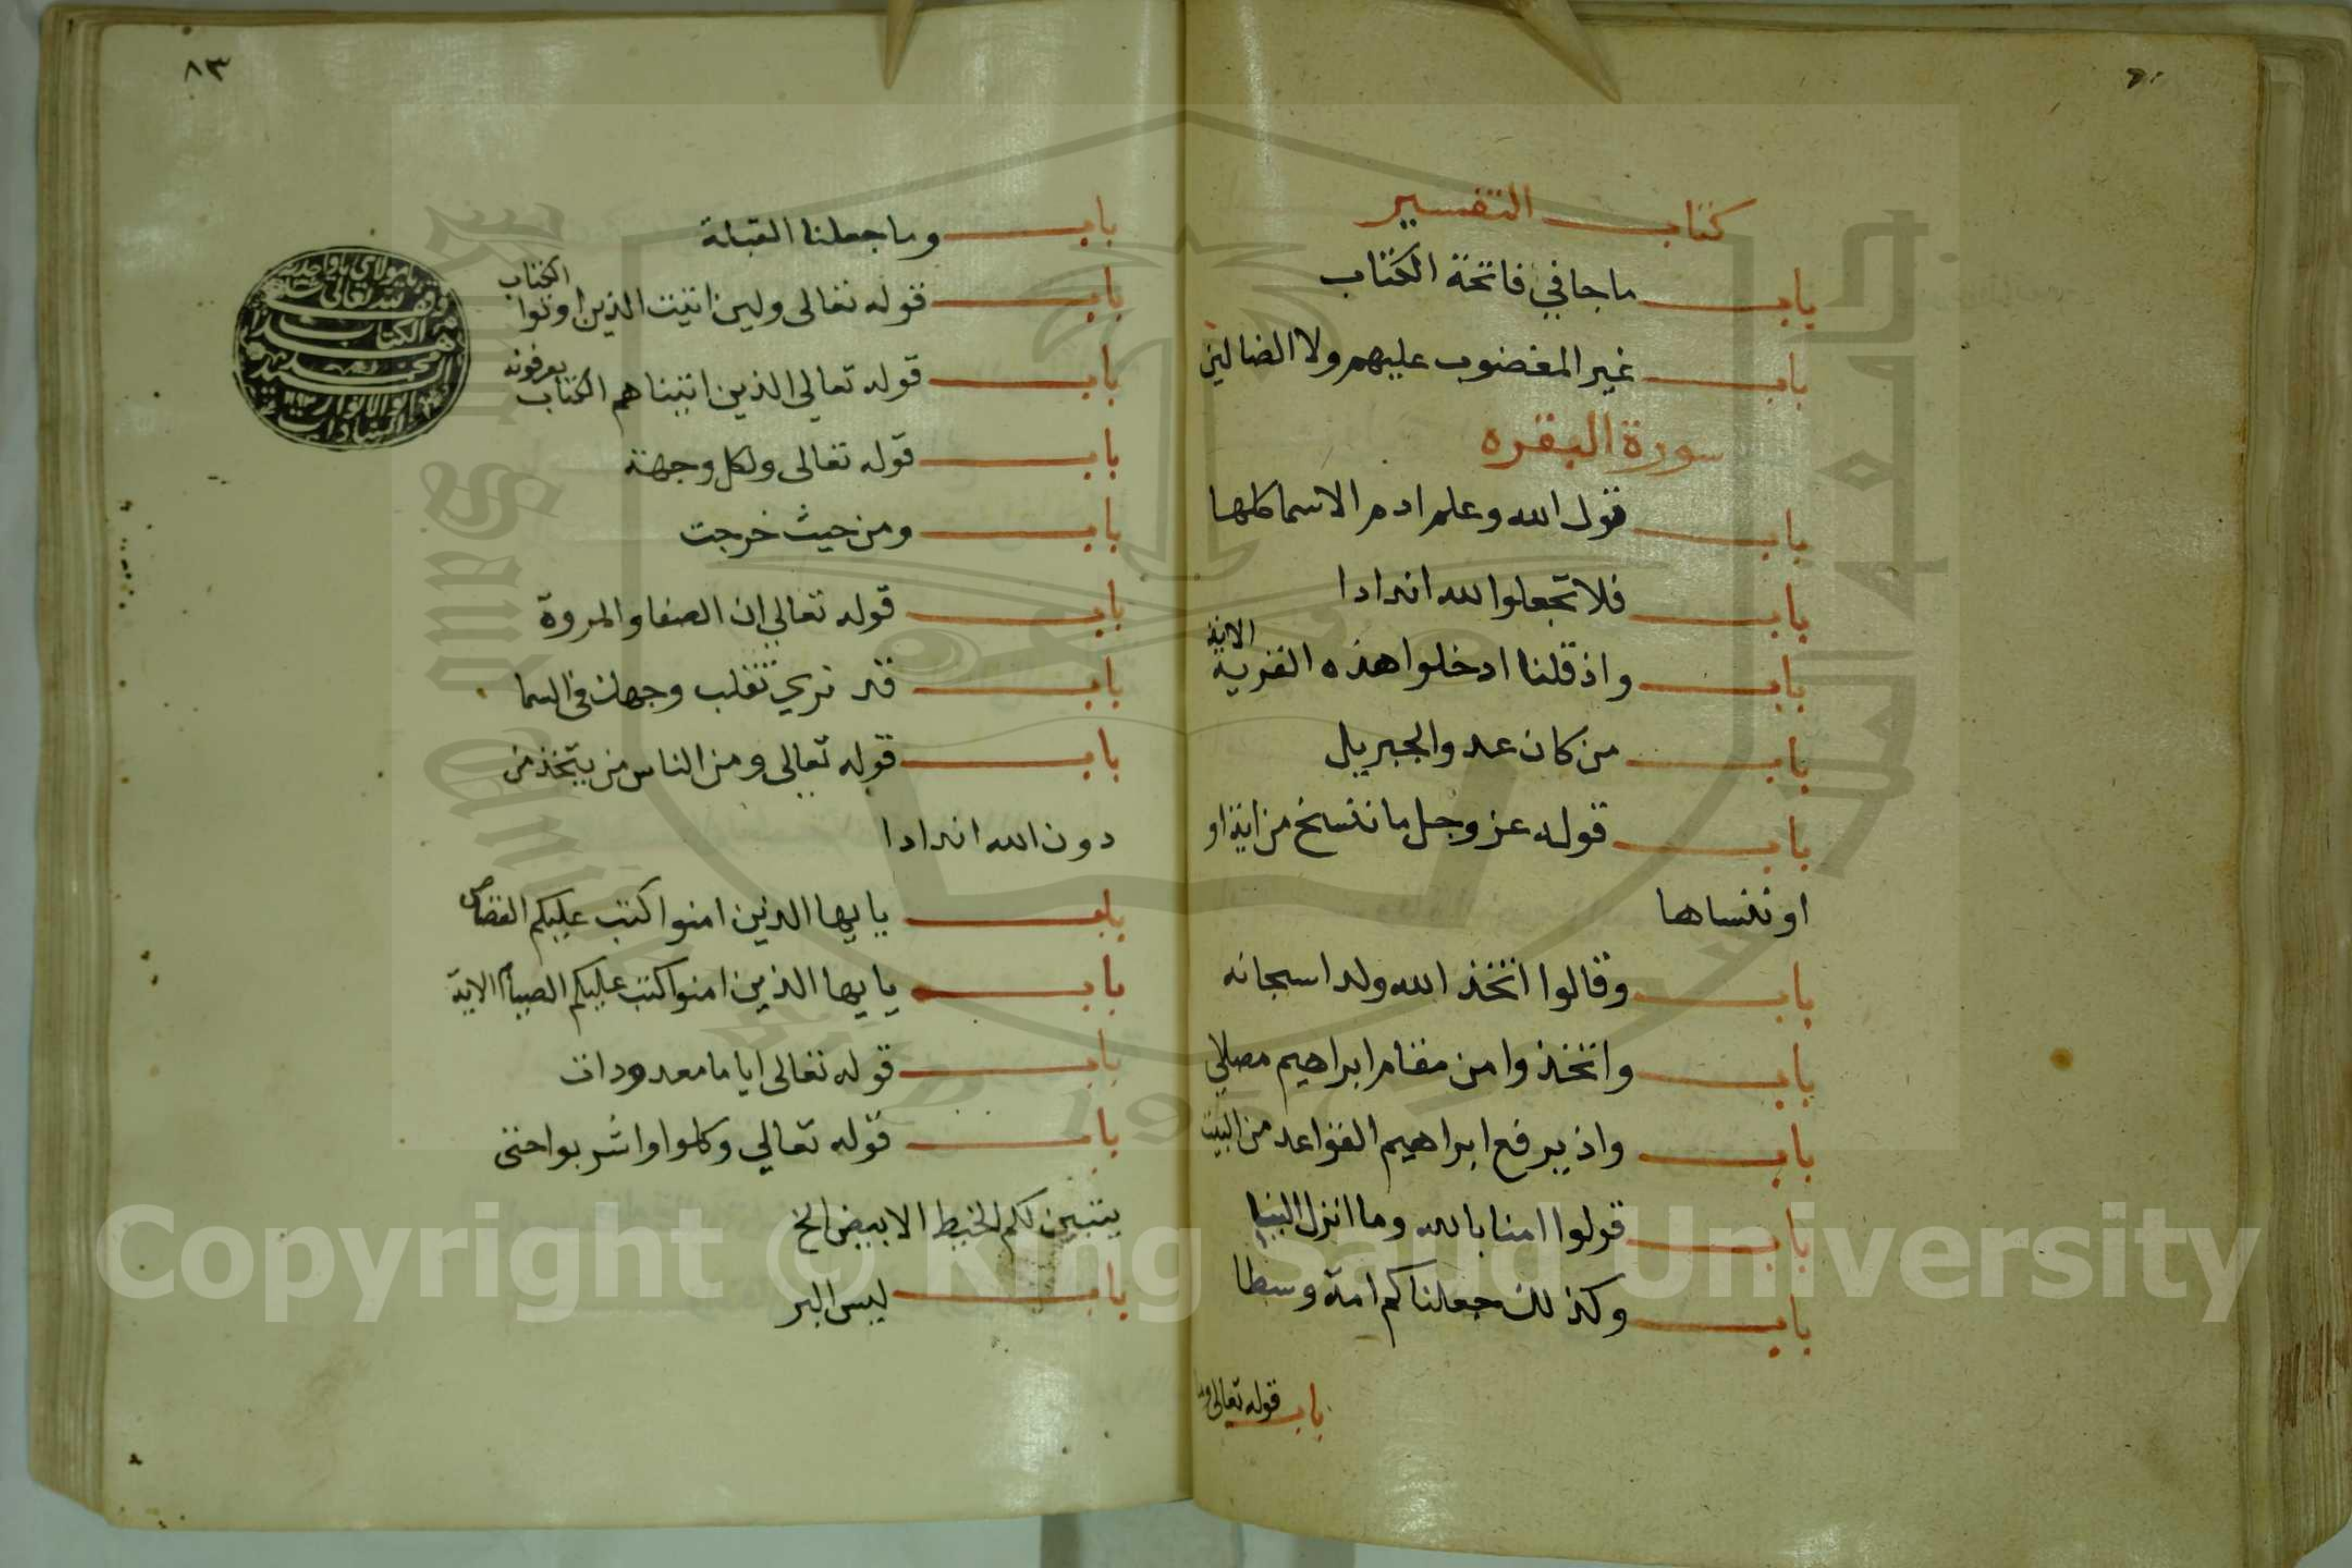 كتاب التفسير
باب ما جا في فاتحة الكتاب
باب غير المغضوب عليهم ولا الضالين
سورة البقره
باب قول الله وعلم ادم الاسما كلها
باب فلا تجعلوا لله اندادا
باب واذ قلنا ادخلوا هذه القرية الاية
باب من كان عدوا لجبريل
باب قوله عز وجل ما ننسخ من اية او
او ننساها
باب وقالوا اتخذ الله ولدا سبحانه
باب واتخذوا من مقام ابراهيم مصلى
باب واذ يرفع ابراهيم القواعد من البيت
باب قولوا امنا بالله وما انزل الينا
باب وكذلك جعلناكم امة وسطا
باب قوله تعالى وما
٨٣
باب وما جعلنا القبلة
باب قوله تعالى ولين اتيت الذين اوتوا الكتاب
باب قوله تعالي الذين اتيناهم الكتاب يعرفونه
باب قوله تعالى ولكل وجهة
باب ومن حيث خرجت
باب قوله تعالي ان الصفا والمروة
باب قد نري تقلب وجهك في السما
باب قوله تعالى ومن الناس من يتخذ من
دون الله اندادا
باب يا يها الذين امنوا كتب عليكم القصاص
باب يا يها الذين امنوا كتب عليكم الصيام الاية
باب قوله تعالى اياما معدودات
باب قوله تعالي وكلوا واشربوا حتى
يتبين لكم الخيط الابيض الخ
باب ليس البر
Copyright © King Saud University
King Saud University
1957